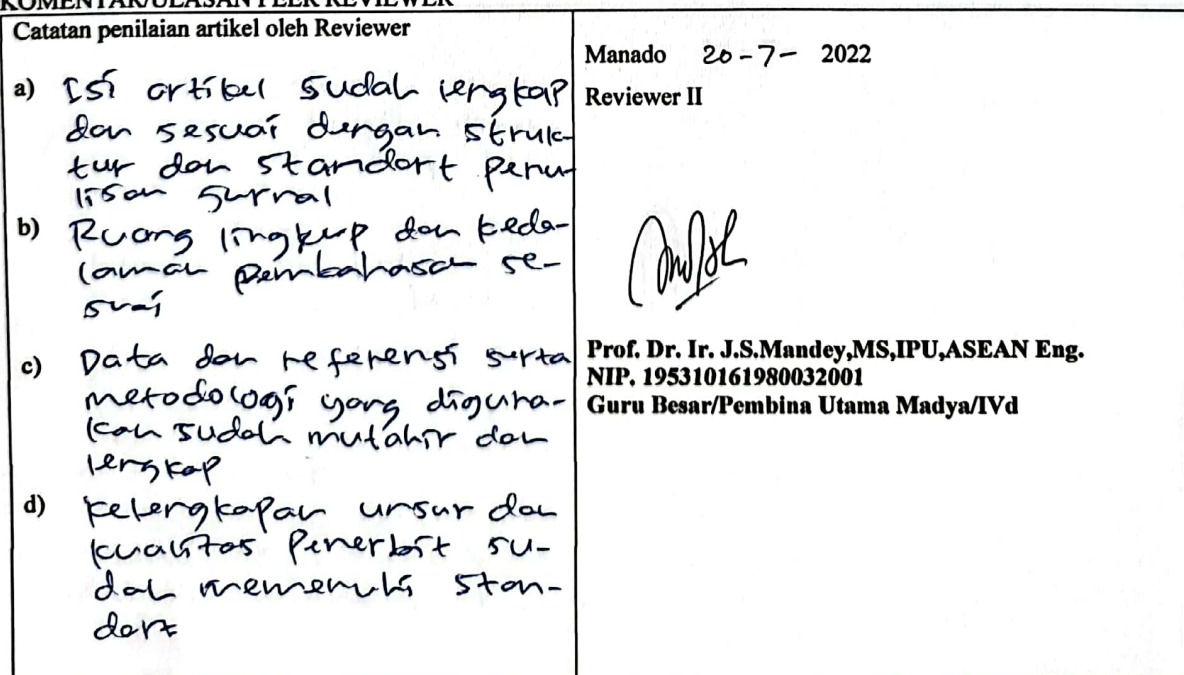 KOMENTAR/ULASAN PEER REVIEWER
Catatan penilaian artikel oleh Reviewer
a) Isi artikel sudah lengkap
dan sesuai dengan struk-
tur dan standart penu-
lisan jurnal
b) Ruang lingkup dan keda-
laman pembahasan se-
suai
c) Data dan referensi serta
metodologi yang diguna-
kan sudah mutahir dan
lengkap
d) Kelengkapan unsur dan
kualitas Penerbit su-
dah memenuhi stan-
dart
Manado 20-7- 2022
Reviewer II
Prof. Dr. Ir. J.S.Mandey,MS,IPU,ASEAN Eng.
NIP. 195310161980032001
Guru Besar/Pembina Utama Madya/IVd